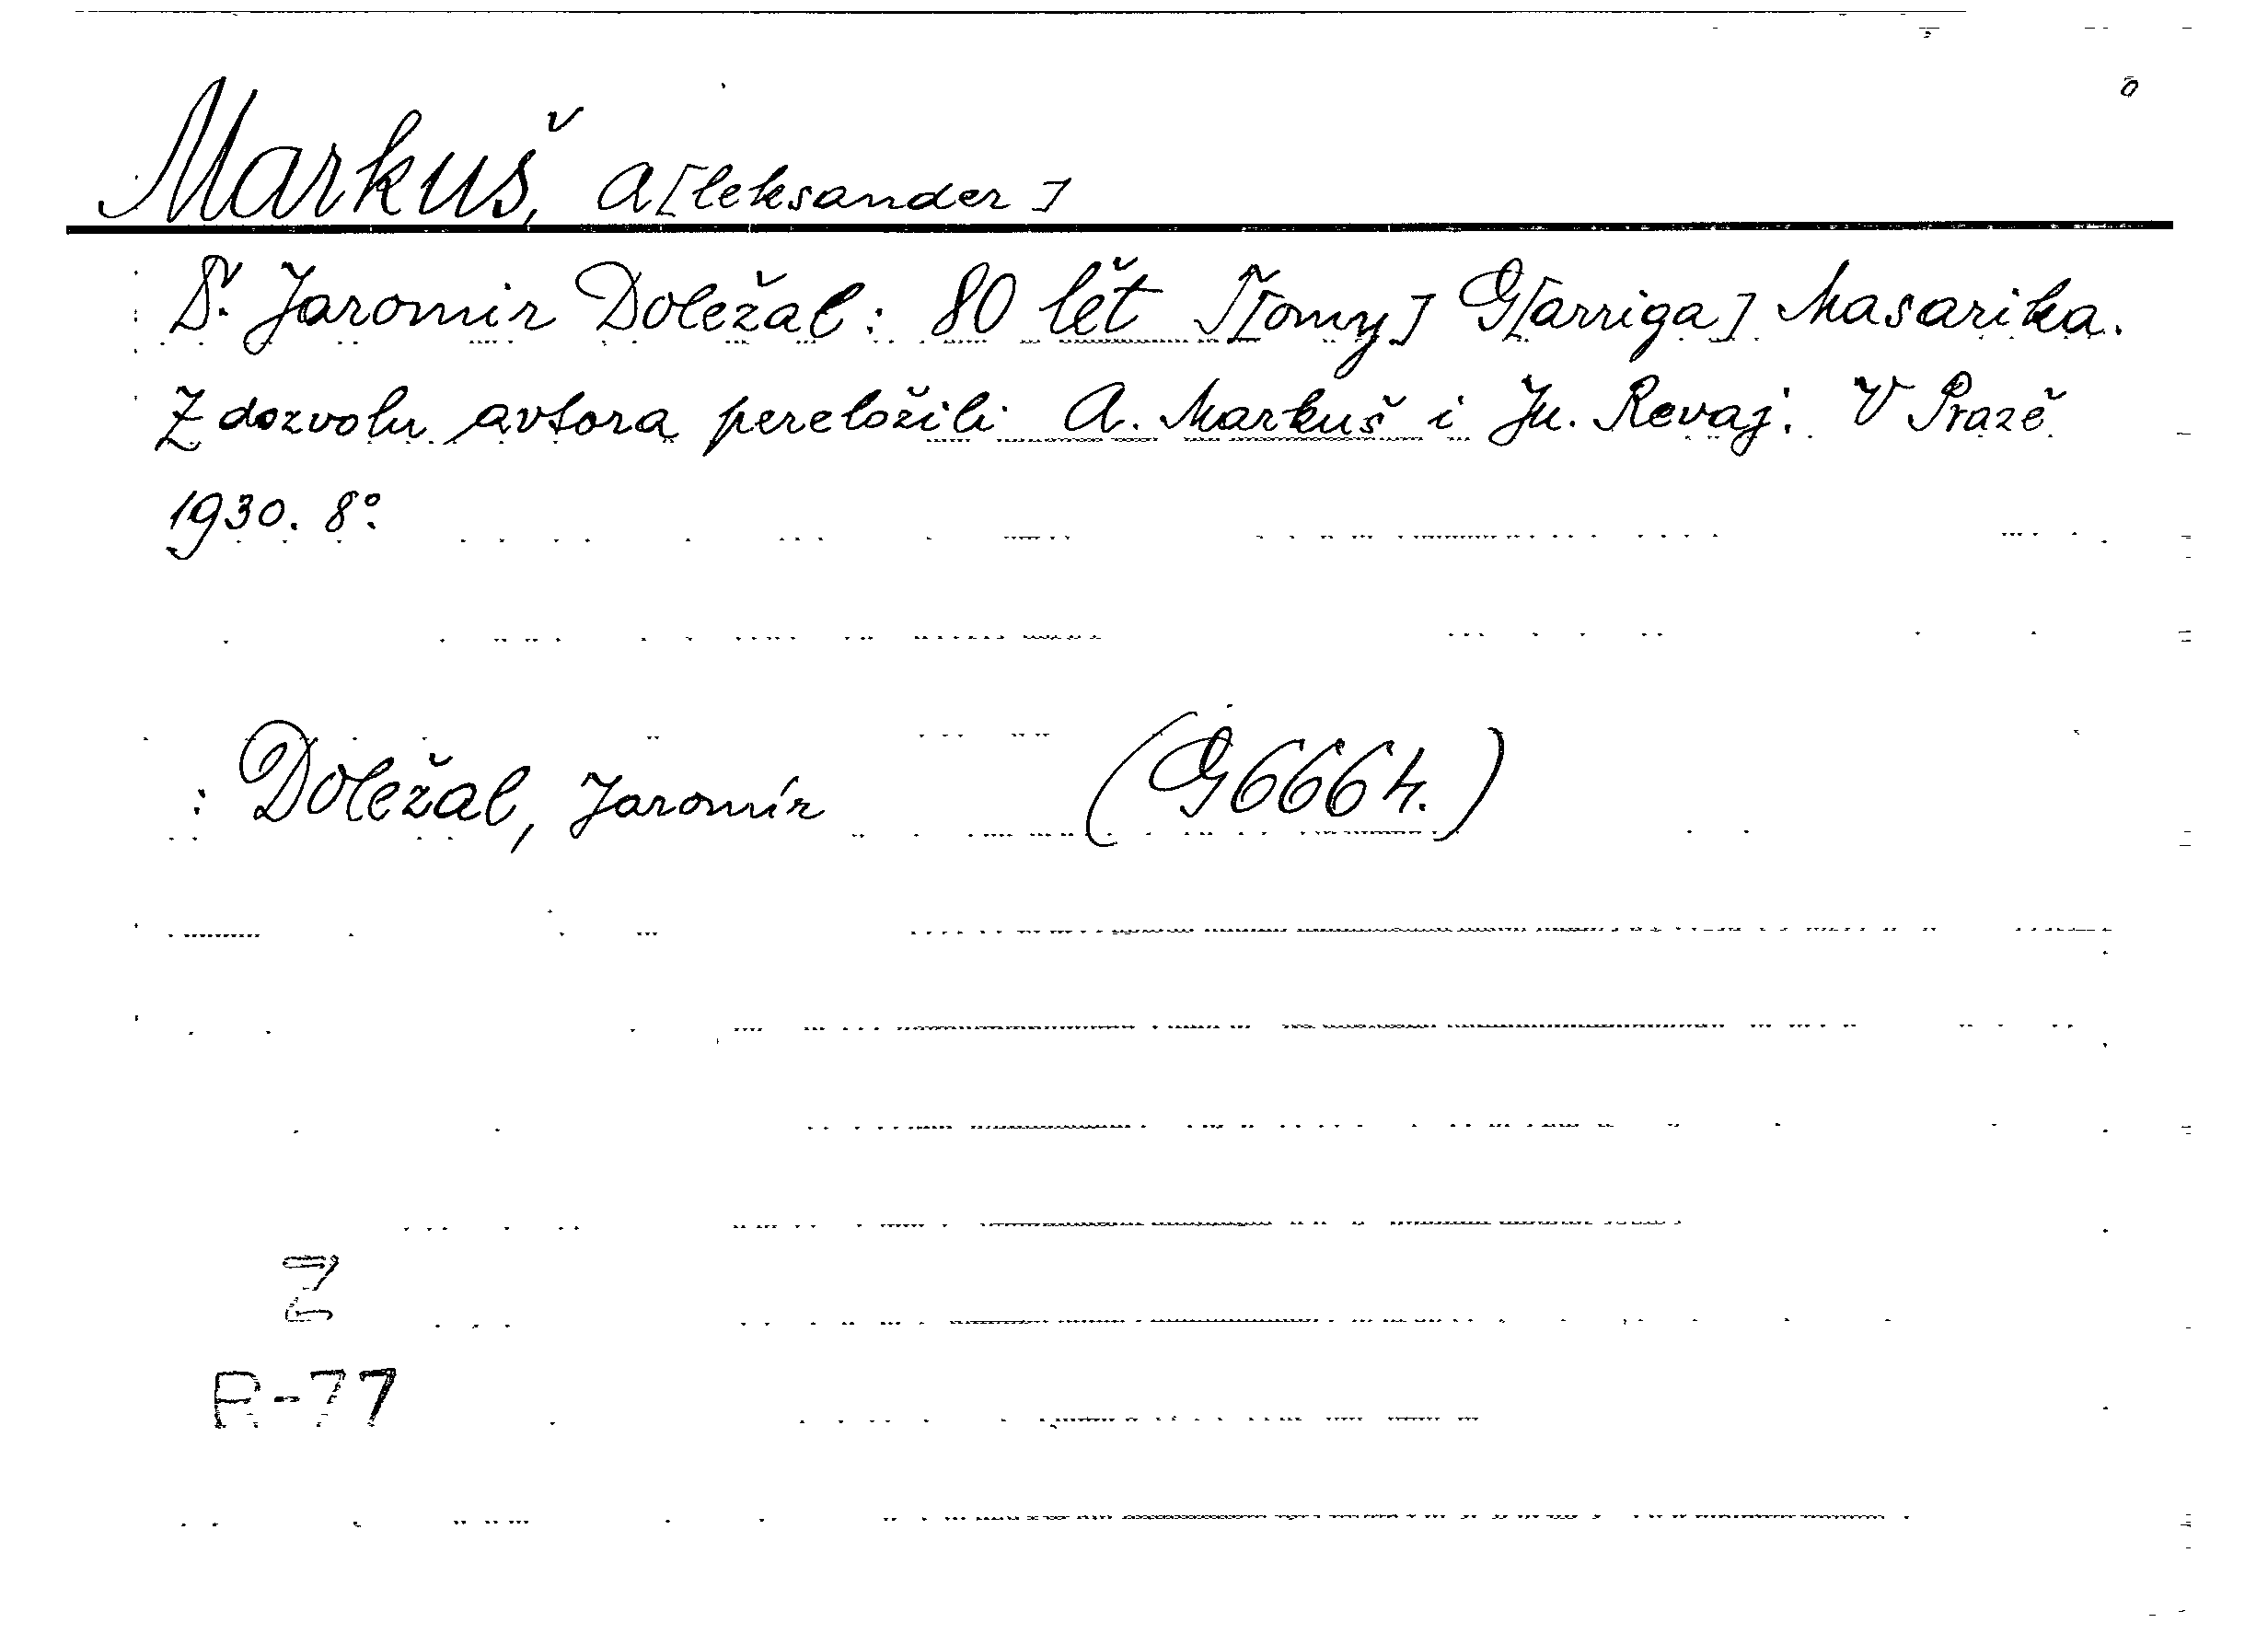 Markuš, A[leksander]
Dr. Jaromir Doležal: 80 lět T[omy] G[arriga] Masarika.
Z dozvolu avtora pereložili A. Markuš i Ju. Revaj. V Prazě
1930. 8°.
Doležal, Jaromír (G6664.)
Z
R-77